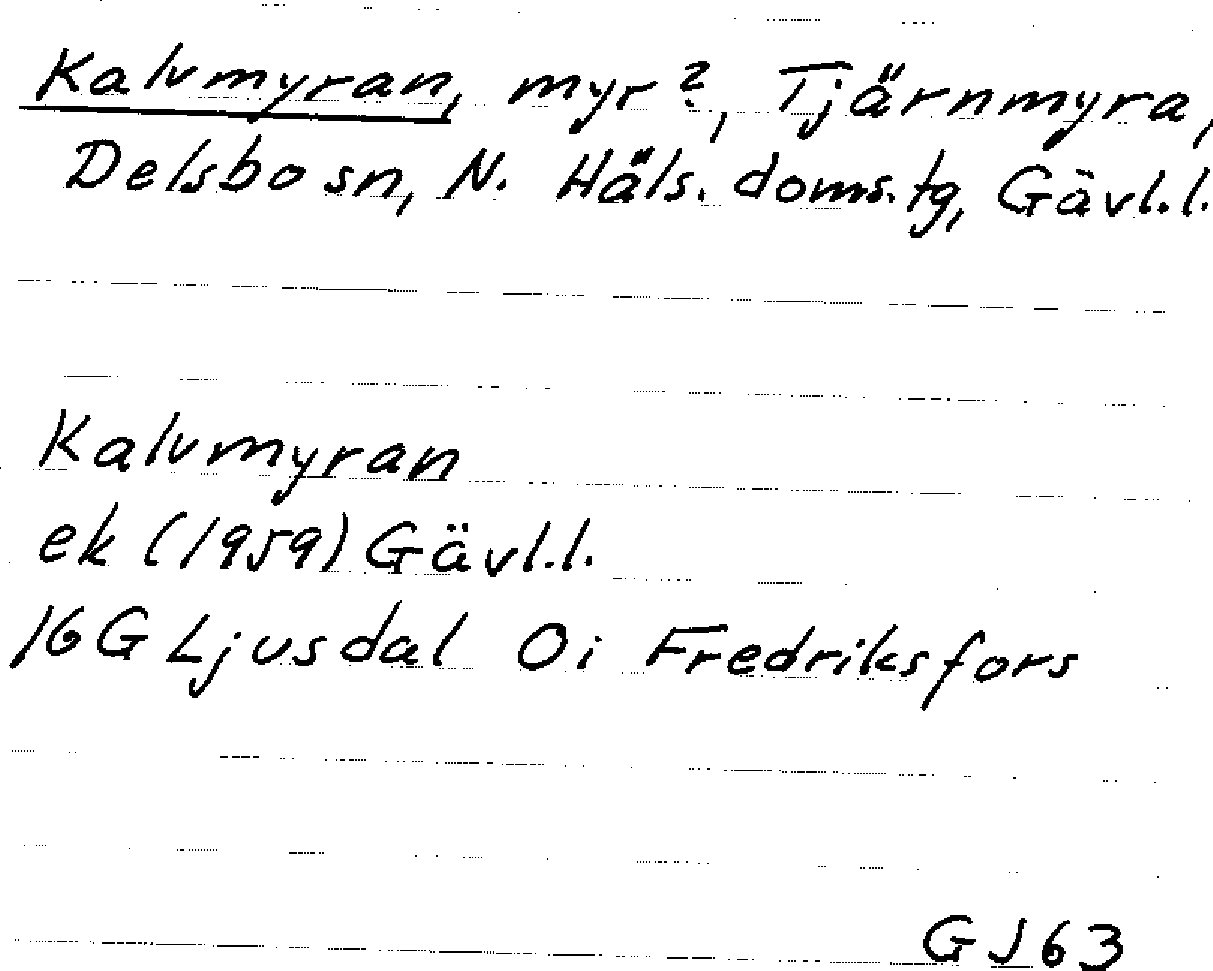 Kalvmyran, myr?, Tjärnmyra,
Delsbo sn, N. Häls. doms.tg, Gävl.l.
Kalvmyran
ek (1959) Gävl.l.
16G Ljusdal 0i Fredriksfors
GJ63